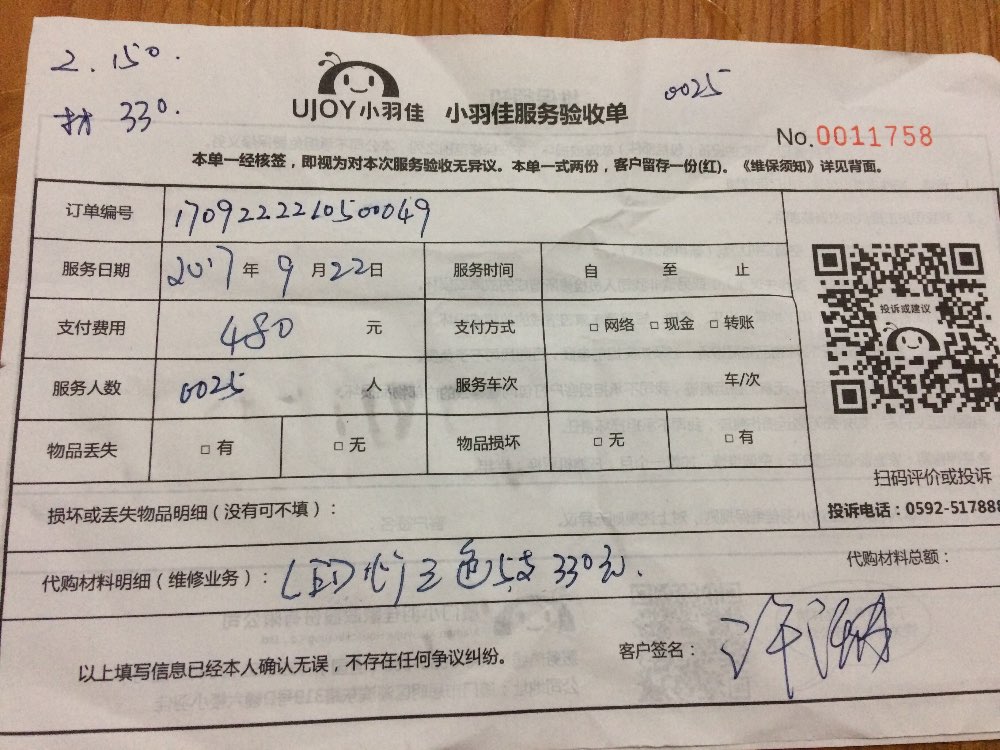 2. 150.
材 330.
UJOY小羽佳 小羽佳服务验收单
0025
No.0011758
本单一经核签，即视为对本次服务验收无异议。本单一式两份，客户留存一份(红)。《维保须知》详见背面。
订单编号 1709222210500049
服务日期 2017年9月22日 服务时间 自 至 止
支付费用 480 元 支付方式 □ 网络 □ 现金 □ 转账
投诉或建议
服务人数 0025 人 服务车次 车/次
物品丢失 □ 有 □ 无 物品损坏 □ 无 □ 有
扫码评价或投诉
损坏或丢失物品明细（没有可不填）：
投诉电话：0592-517888
代购材料明细（维修业务）：LED灯三色5支330元.
代购材料总额：
以上填写信息已经本人确认无误，不存在任何争议纠纷。
客户签名：许